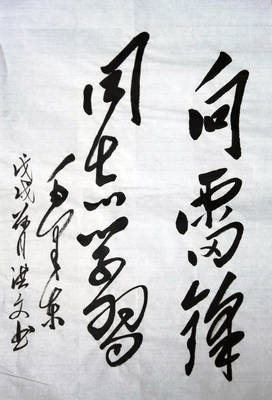 向雷锋
同志学习
毛泽东
戊戌首月洪文书